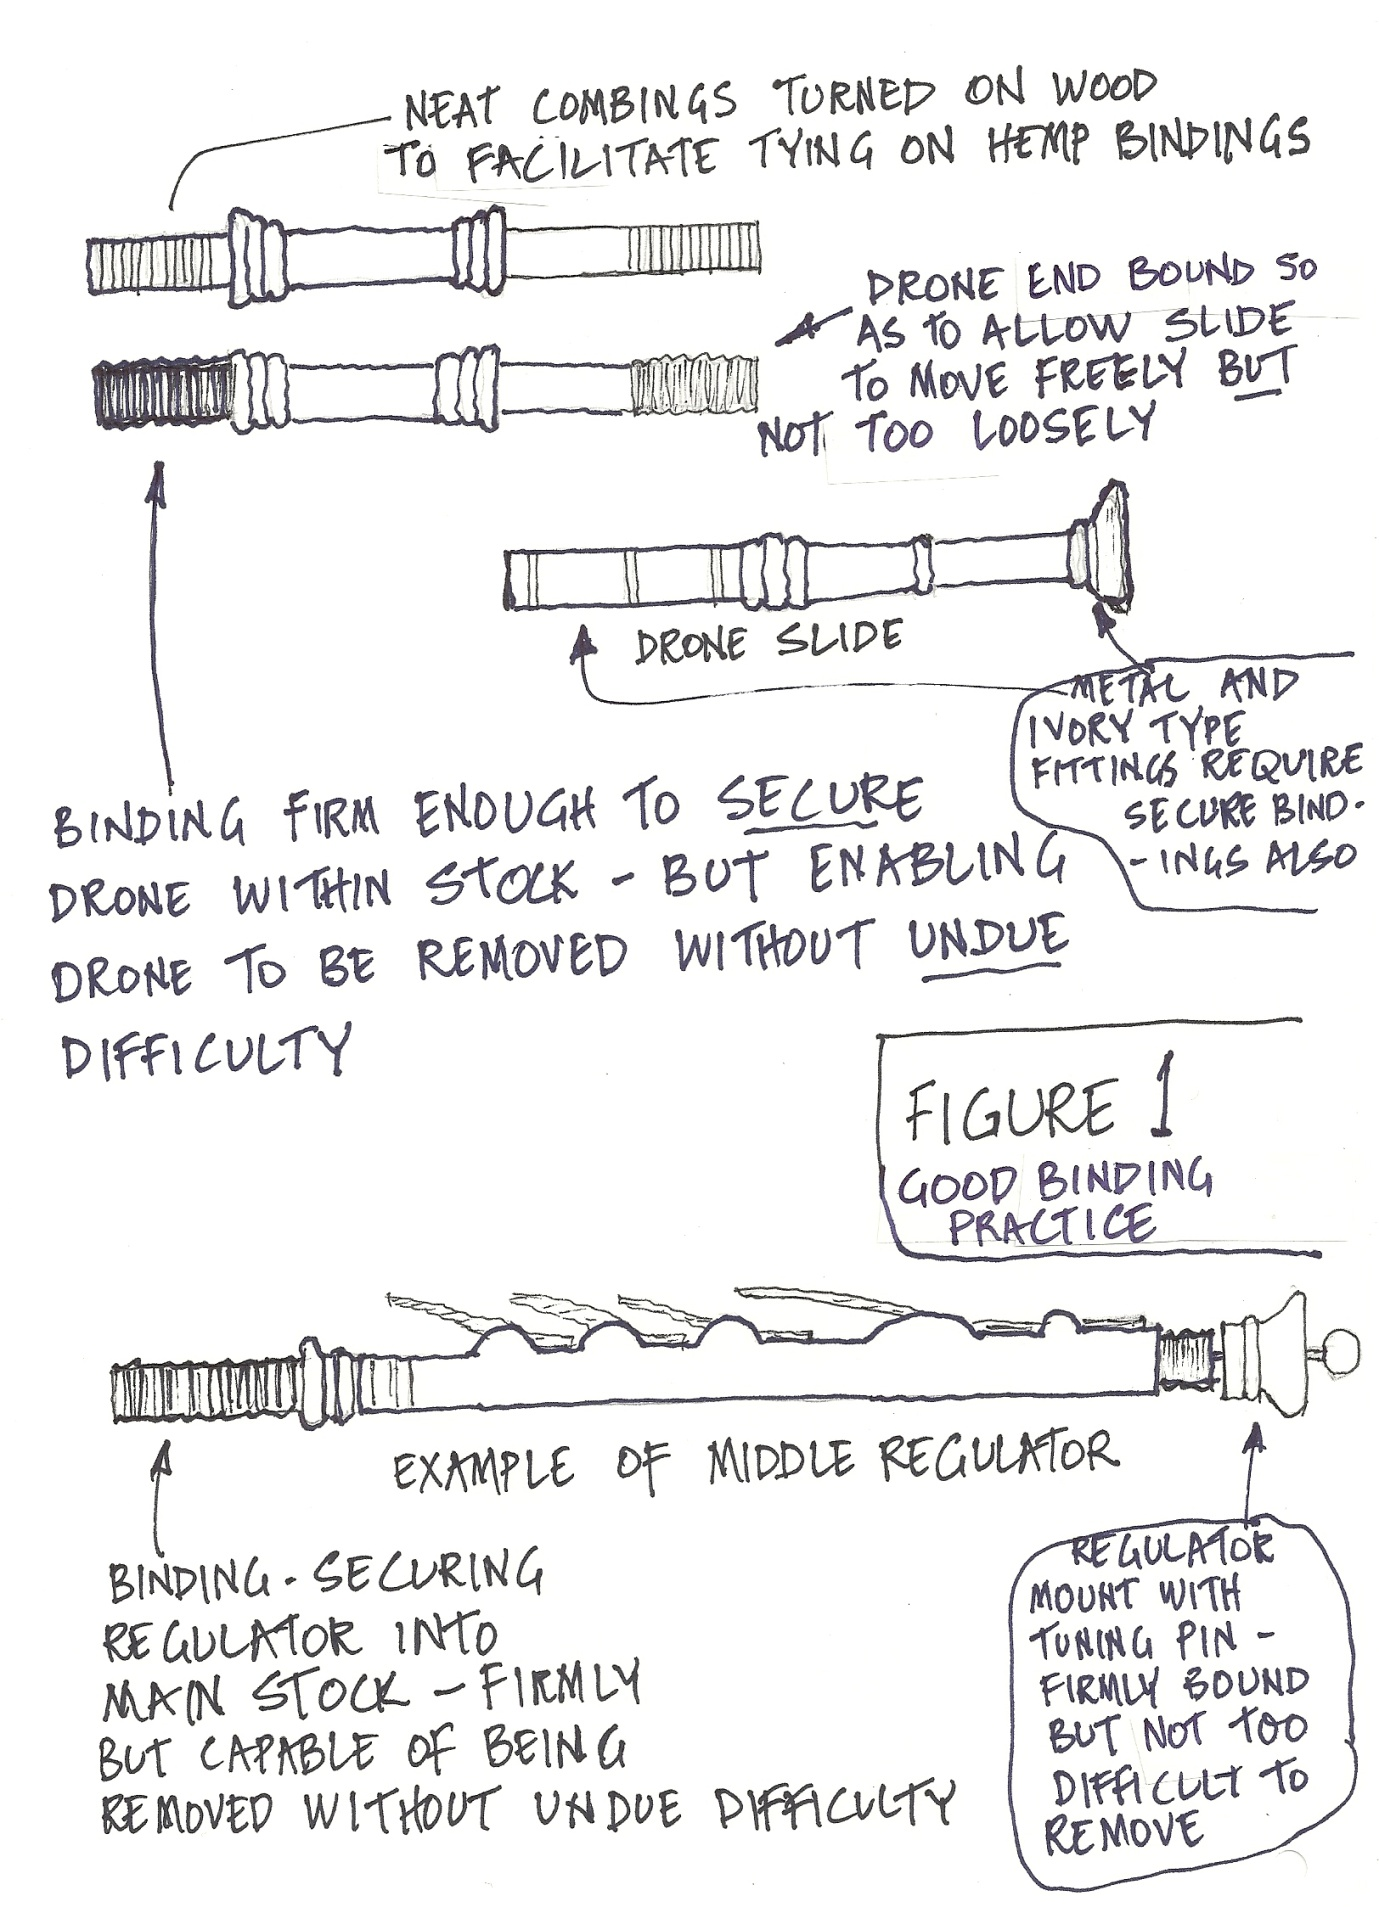 NEAT COMBINGS TURNED ON WOOD
TO FACILITATE TYING ON HEMP BINDINGS
DRONE END BOUND SO
AS TO ALLOW SLIDE
TO MOVE FREELY BUT
NOT TOO LOOSELY
DRONE SLIDE
METAL AND
IVORY TYPE
FITTINGS REQUIRE
SECURE BIND-
-INGS ALSO
BINDING FIRM ENOUGH TO SECURE
DRONE WITHIN STOCK - BUT ENABLING
DRONE TO BE REMOVED WITHOUT UNDUE
DIFFICULTY
FIGURE 1
GOOD BINDING
PRACTICE
EXAMPLE OF MIDDLE REGULATOR
BINDING - SECURING
REGULATOR INTO
MAIN STOCK - FIRMLY
BUT CAPABLE OF BEING
REMOVED WITHOUT UNDUE DIFFICULTY
REGULATOR
MOUNT WITH
TUNING PIN -
FIRMLY BOUND
BUT NOT TOO
DIFFICULT TO
REMOVE